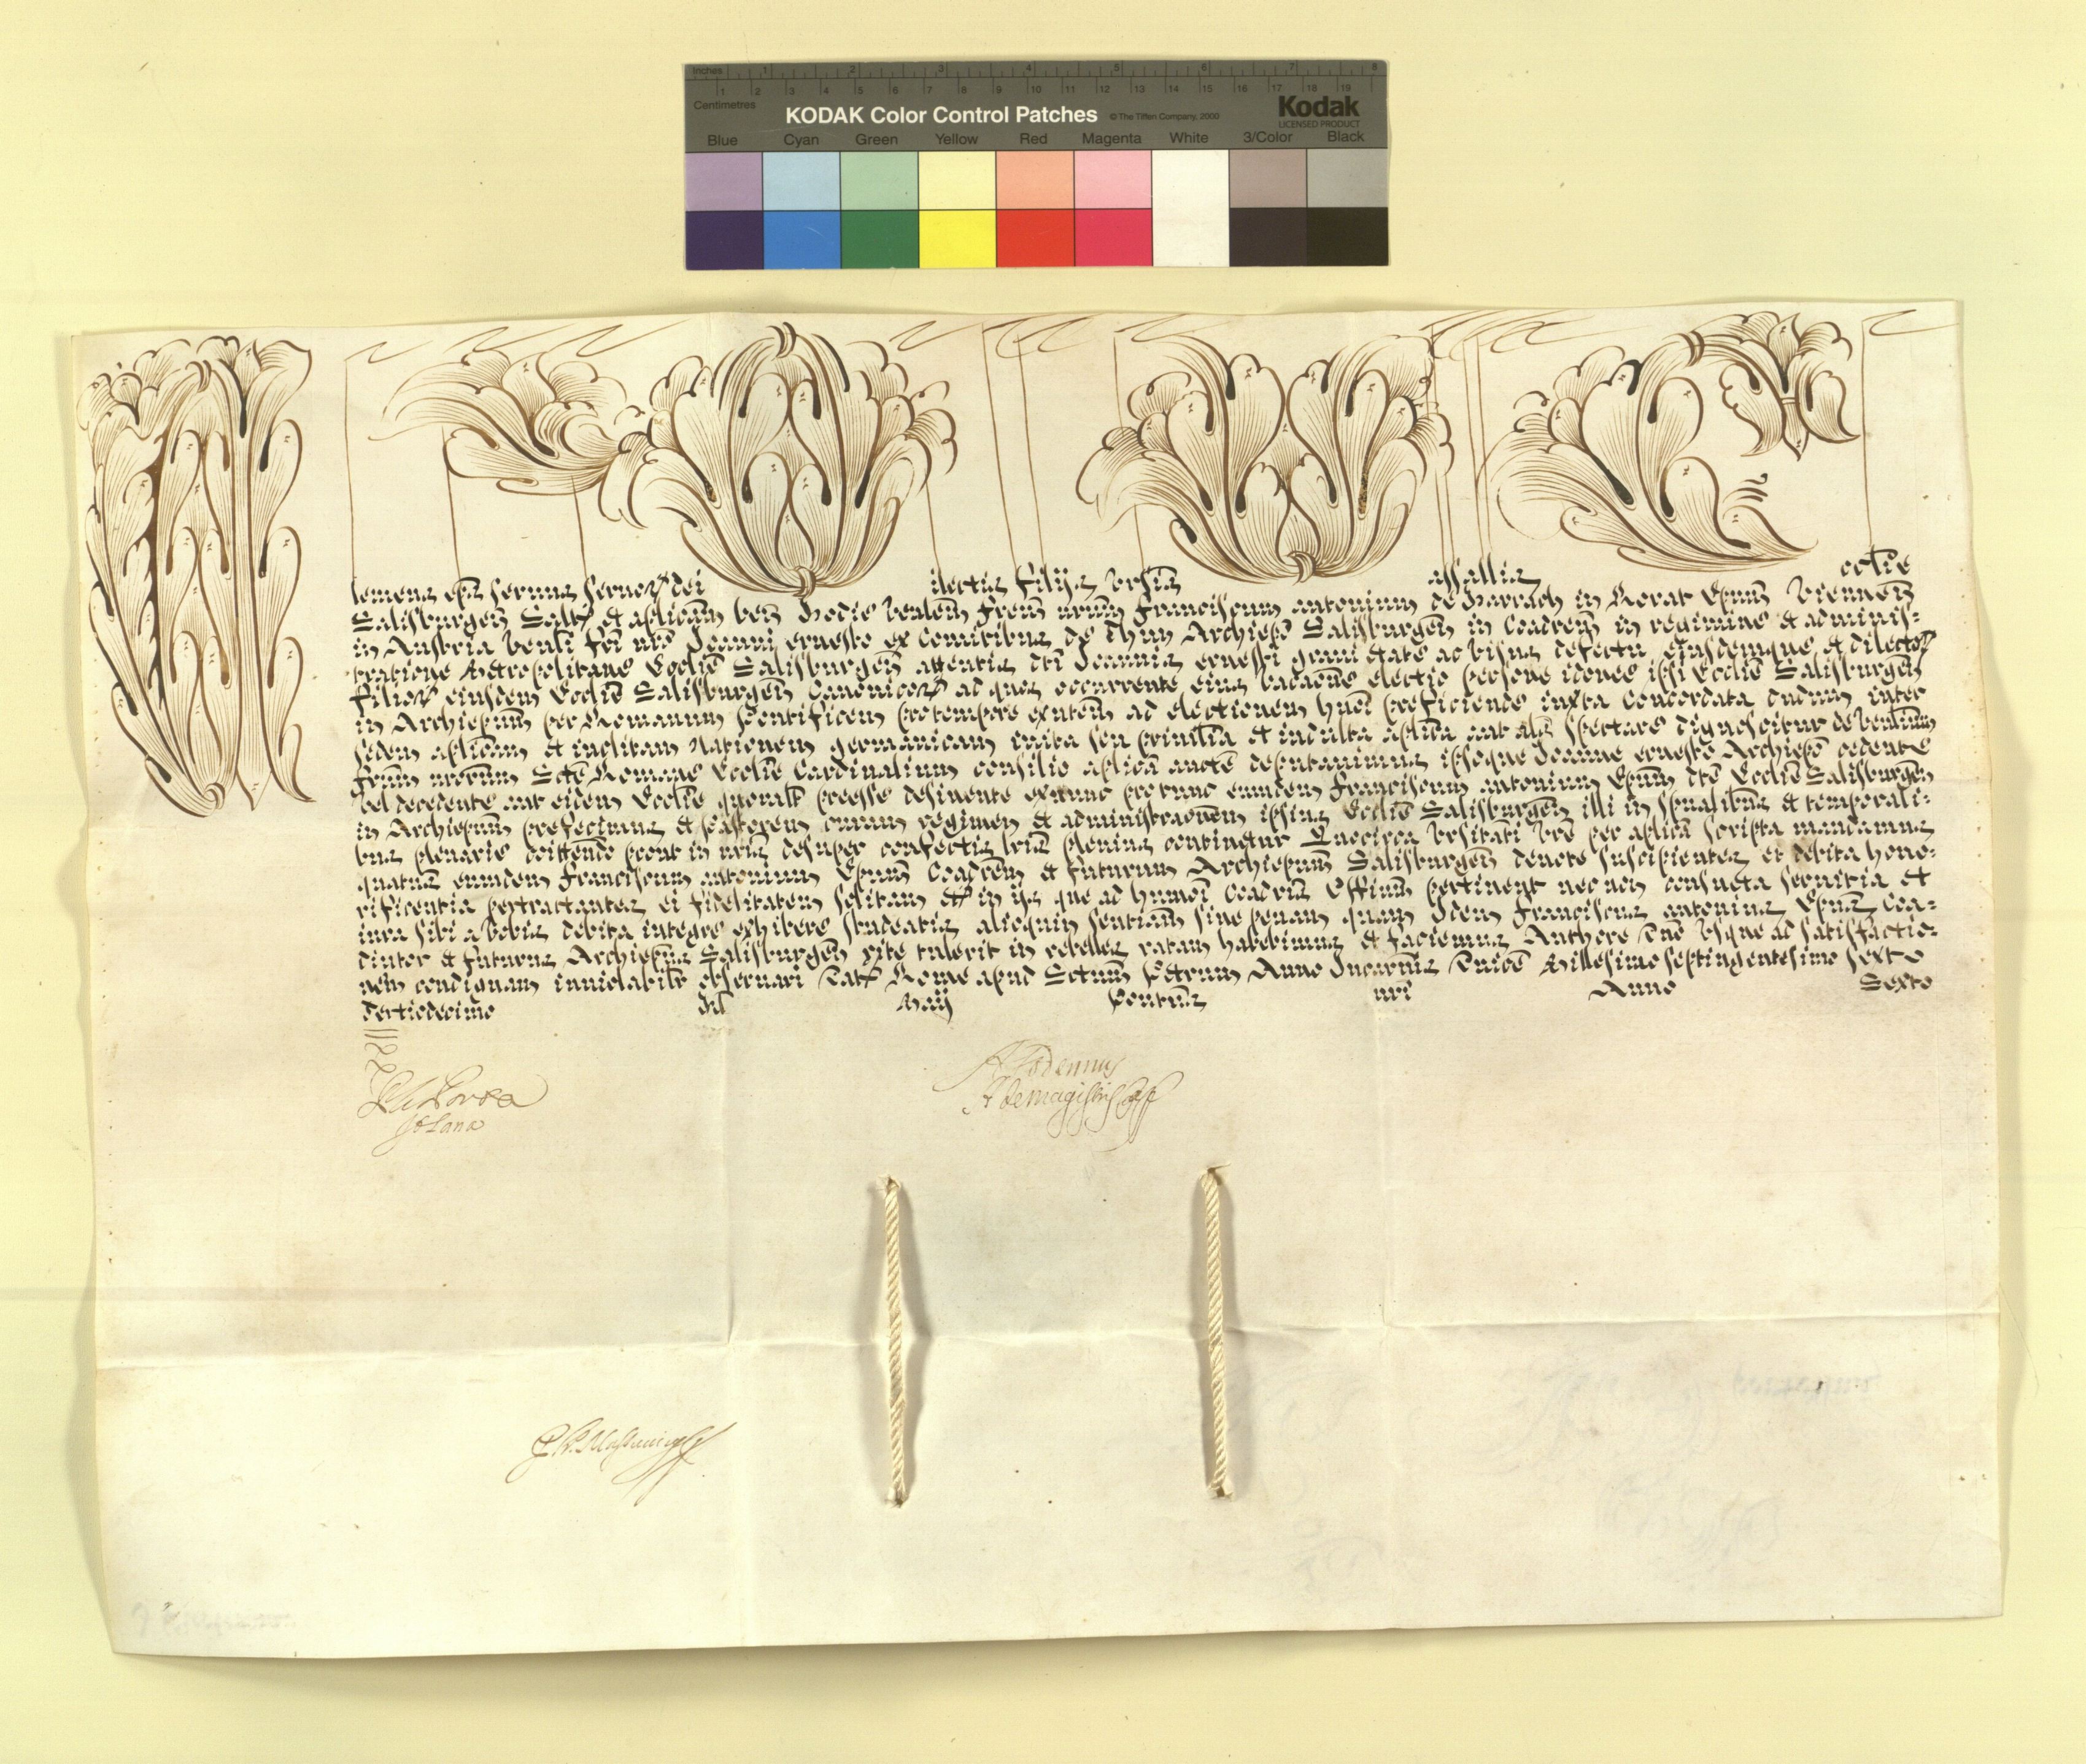 Inches 1 2 3 4 5 6 7 8
1 2 3 4 5 6 7 8 9 10 11 12 13 14 15 16 17 18 19
Centimetres
KODAK Color Control Patches © The Tiffen Company, 2000 Kodak
LICENSED PRODUCT
Blue Cyan Green Yellow Red Magenta White 3/Color Black
lemens epūs seruus seruoꝝ dei ilectis filijs vrsiis assallis ecclie
Salisburgen̄ Saltm̄ et aplicam ben̄ Hodie venlem̄ frem̄ nrum̄ Franciscum antonium de Harrach in Rorat Epum̄ Viennen̄
in Austria venli fri nro Joanni ernesto ex Comitibus de Thun Archiepo Salisburgen̄ in Coadrem̄ in regimine et adminis=
tratione Metropolitane Ecclie Salisburgen̄ attentis dti Joannis ernesti graui etate ac visus defectu ejusdemque et dilectoꝝ
filioꝝ eiusdem Ecclie Salisburgen̄ Canonicoꝝ ad quos occurrente eius vacaone electio persone idonee ipsi Ecclie Salisburgen̄
in Archiepum̄ per Romanum Pontificem pro tempore exntem̄ ad electionem huoi preficiende iuxta Concordata dudum inter
sedem aplicam et inclitam Nationem germanicam inita seu priuilia et indulta aplica aut als spectare dignoscitur de venlium̄
frum̄ nrorum̄ Scte Romane Ecclie Cardinalium consilio aplica aucte deputauimus ipsoque Joanne ernesto Archiepo cedente
vel decedente aut eidem Ecclie quomolt preesse desinente exnunc protunc eumdem Franciscum antonium Epum̄ dte Ecclie Salisburgen̄
in Archiepum̄ prefecimus et Pastorem curam regimen et administraonem̄ ipsius Ecclie Salisburgen̄ illi in spualibus et temporali=
bus plenarie coittendo prout in nris desuper confectis lris plenius continetur Quocirca vrsitati vre per aplica scripta mandamus
quatus eumdem Franciscum antonium Epum̄ Coadrem̄ et futurum Archiepum̄ Salisburgen̄ deuote suscipientes et debita hono=
rificentia pertractantes ei fidelitatem solitam et in ijs que ad humoi Coadris Offium̄ pertinent nec non consueta seruitia et
iura sibi a vobis debita integre exhibere studeatis alioquin sentiam̄ siue penam quam Idem Franciscus antonius Epus̄ Coa=
diutor et futurus Archiepus̄ Salisburgen̄ rite tulerit in rebelles ratam habebimus et faciemus Authore Dno vsque ad satisfactio=
nem condignam inuiolabilr obseruari Datꝭ Rome apud Sctum̄ Petrum Anno Incarnis Dnice Millesimo septingentesimo sexto
Tertiodecimo Kl Maij Pontus nri Anno Sexto